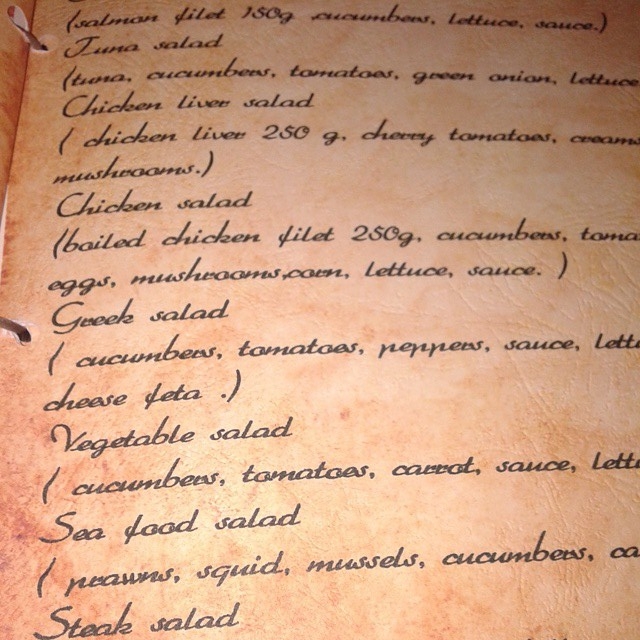 (salmon filet 150g ,cucumbers, lettuce, sauce.)
Tuna salad
(tuna, cucumbers, tomatoes, green onion, lettuce
Chicken liver salad
( chicken liver 250 g, cherry tomatoes, creams
mushrooms.)
Chicken salad
(boiled chicken filet 250g, cucumbers, toma
eggs, mushrooms,corn, lettuce, sauce. )
Greek salad
( cucumbers, tomatoes, peppers, sauce, lett
cheese feta .)
Vegetable salad
( cucumbers, tomatoes, carrot, sauce, lettu
Sea food salad
( prawns, squid, mussels, cucumbers, ca
Steak salad